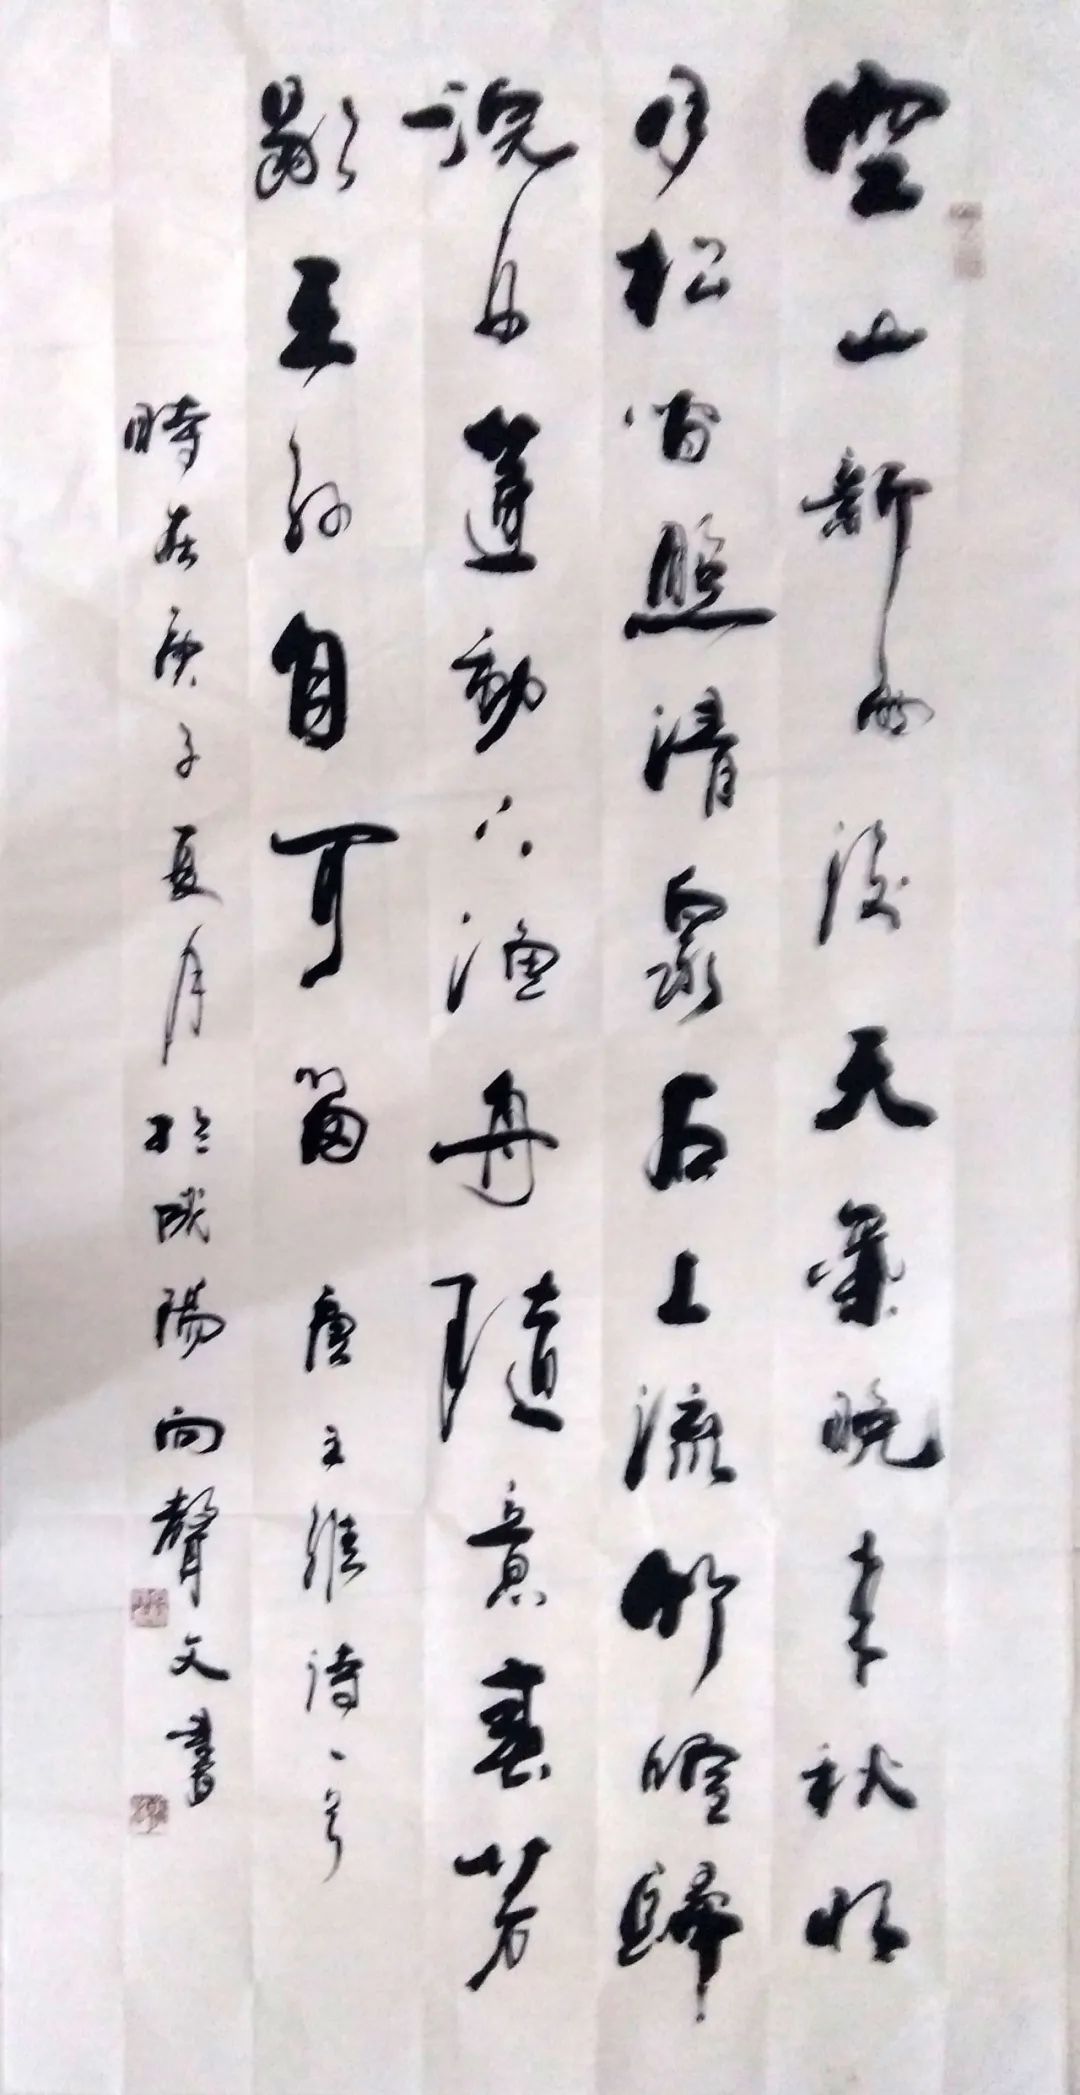 空山新雨後天氣晚来秋明
月松間照清泉石上流竹喧歸
浣女蓮動下漁舟隨意春芳
歇王孫自可留 唐王維詩一首
時在庚子夏月於咸陽向聲文書